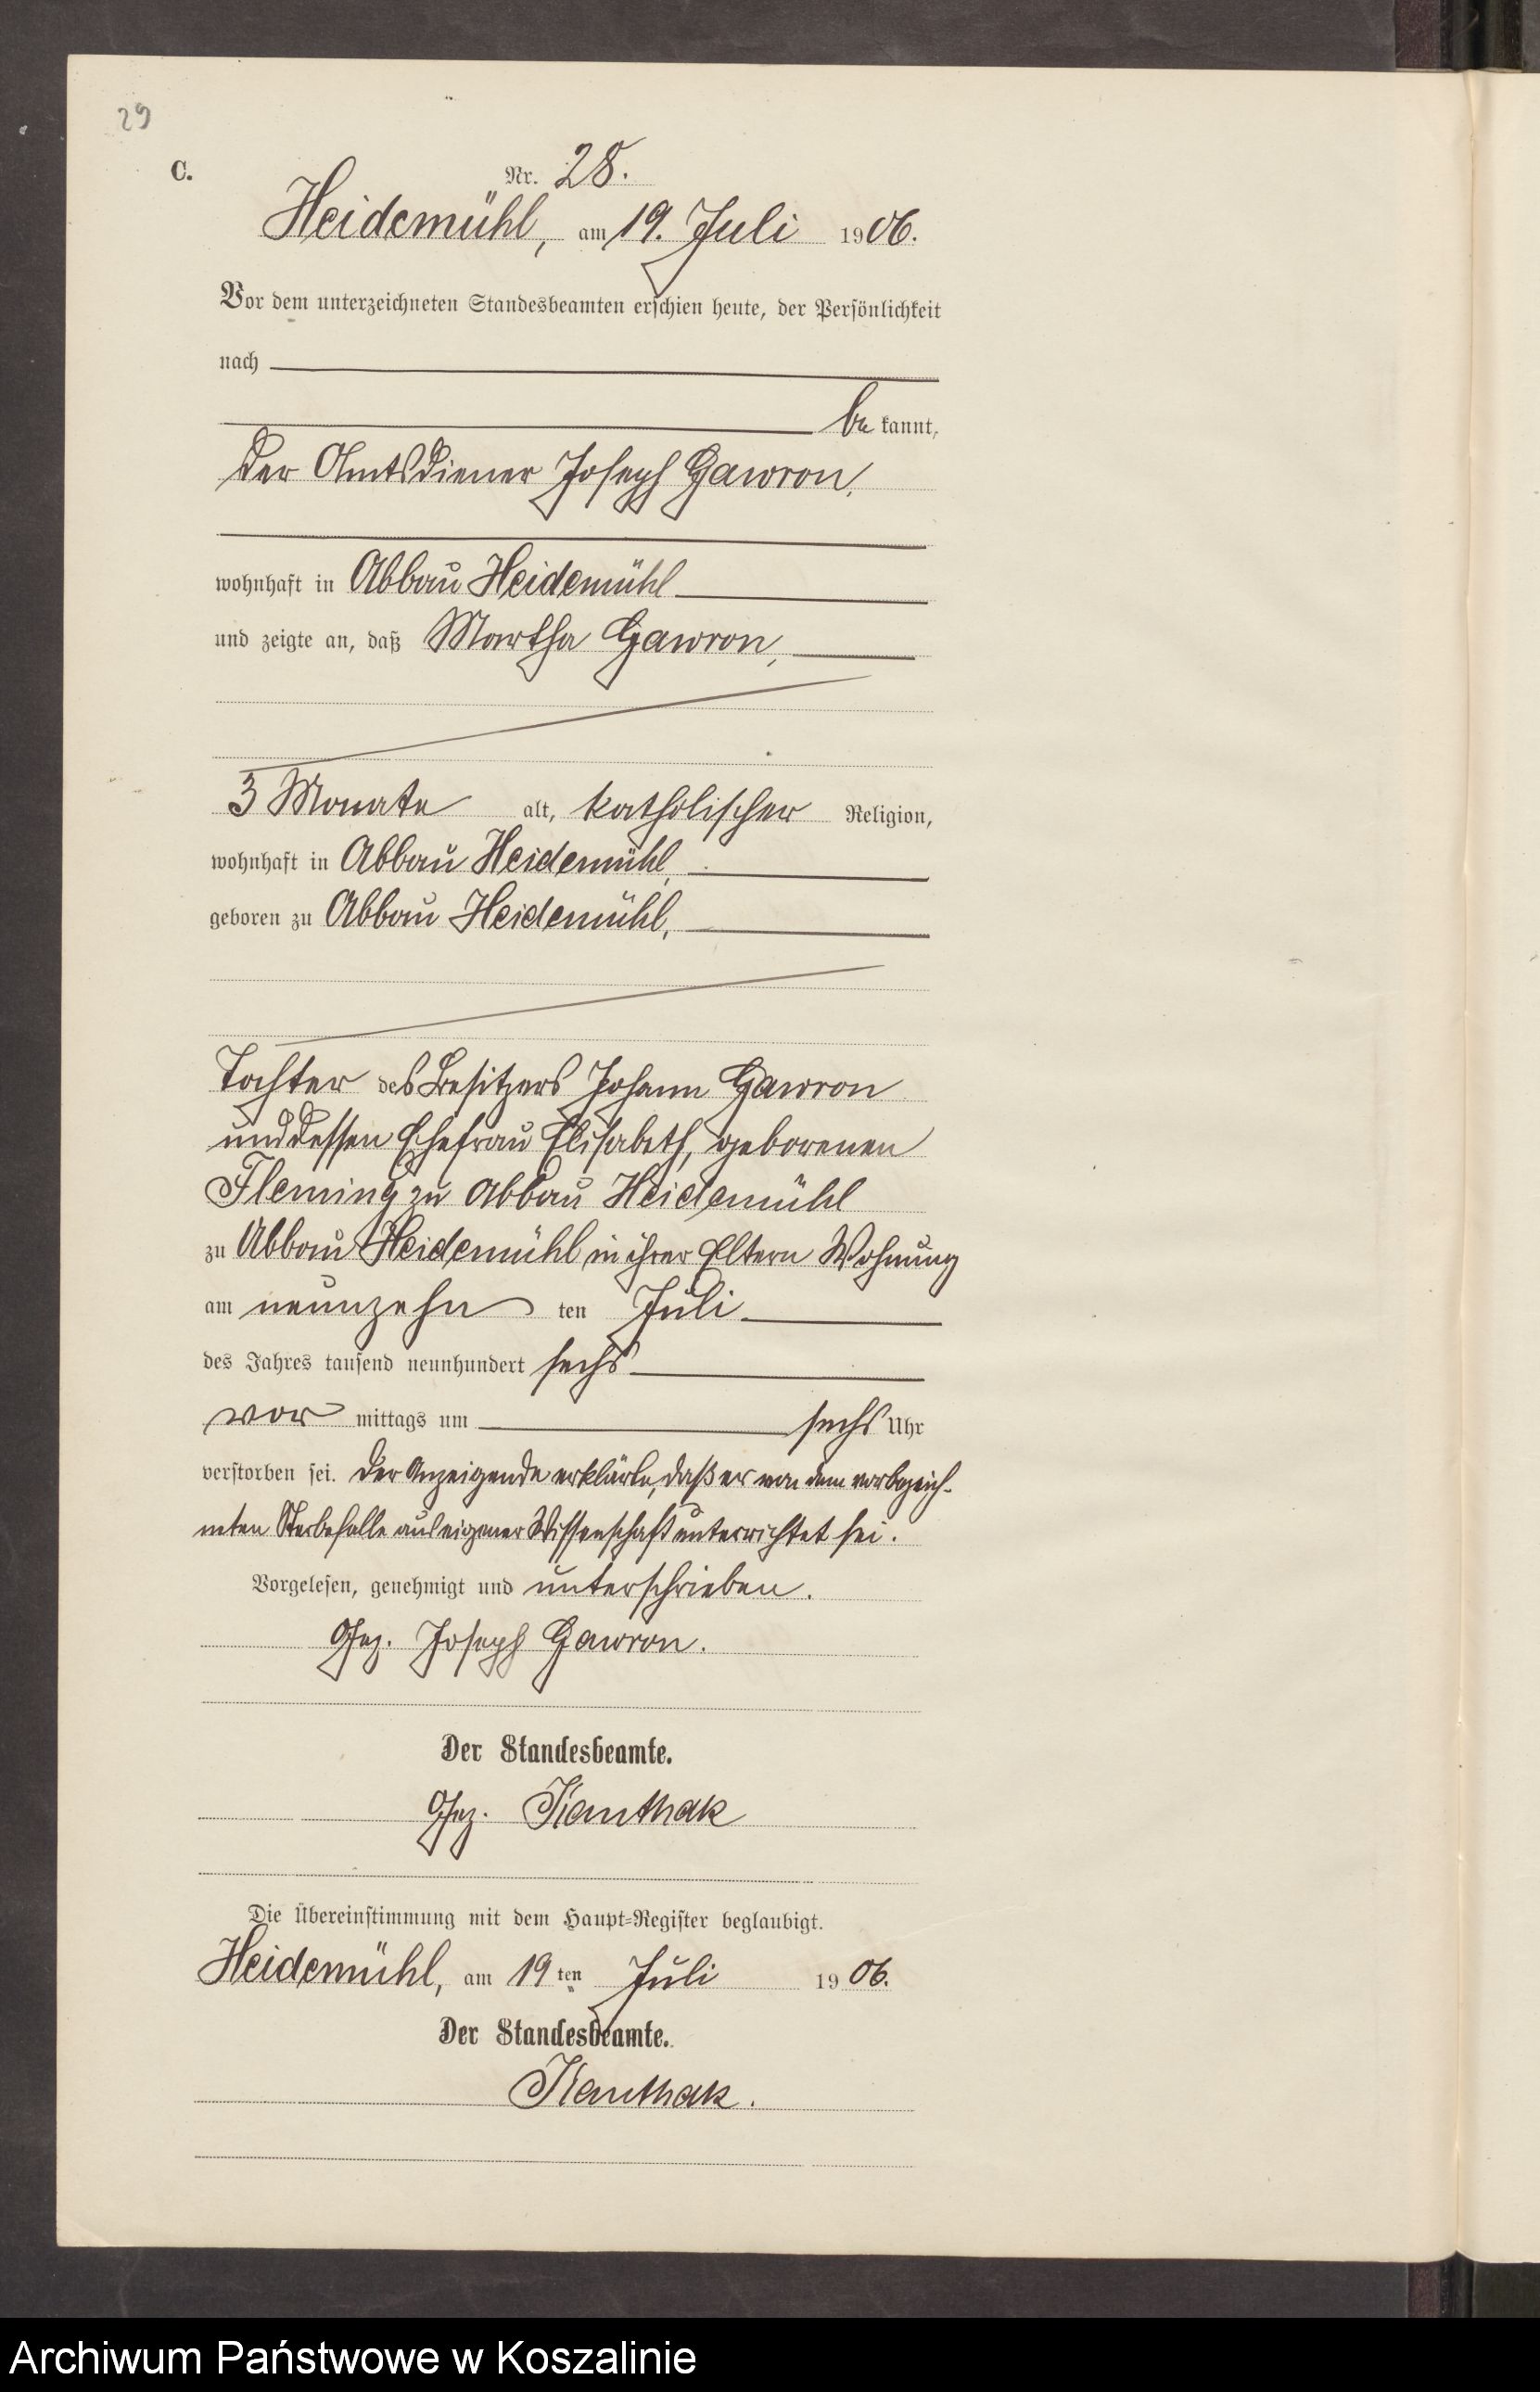 29
C.
Nr. 28.
Heidemühl, am 19. Juli 1906.
Vor dem unterzeichneten Standesbeamten erschien heute, der Persönlichkeit
nach
be kannt,
der Amtsdiener Joseph Gawron,
wohnhaft in Abbau Heidemühl
und zeigte an, daß Martha Gawron,
3 Monate alt, katholischer Religion,
wohnhaft in Abbau Heidemühl,
geboren zu Abbau Heidemühl,
Tochter des Besitzers Johann Gawron
und dessen Ehefrau Elisabeth, geborenen
Fleming zu Abbau Heidemühl
zu Abbau Heidemühl in ihrer Eltern Wohnung
am neunzehn ten Juli
des Jahres tausend neunhundert sechs
vor mittags um sechs Uhr
verstorben sei. Der Anzeigende erklärte, daß er von dem vorbezeich-
neten Sterbefalle aus eigener Wissenschaft unterrichtet sei.
Vorgelesen, genehmigt und unterschrieben.
Gez. Joseph Gawron.
Der Standesbeamte.
Gez. Kanthak
Die Übereinstimmung mit dem Haupt-Register beglaubigt.
Heidemühl, am 19 ten Juli 1906.
Der Standesbeamte.
Kanthak.
Archiwum Państwowe w Koszalinie